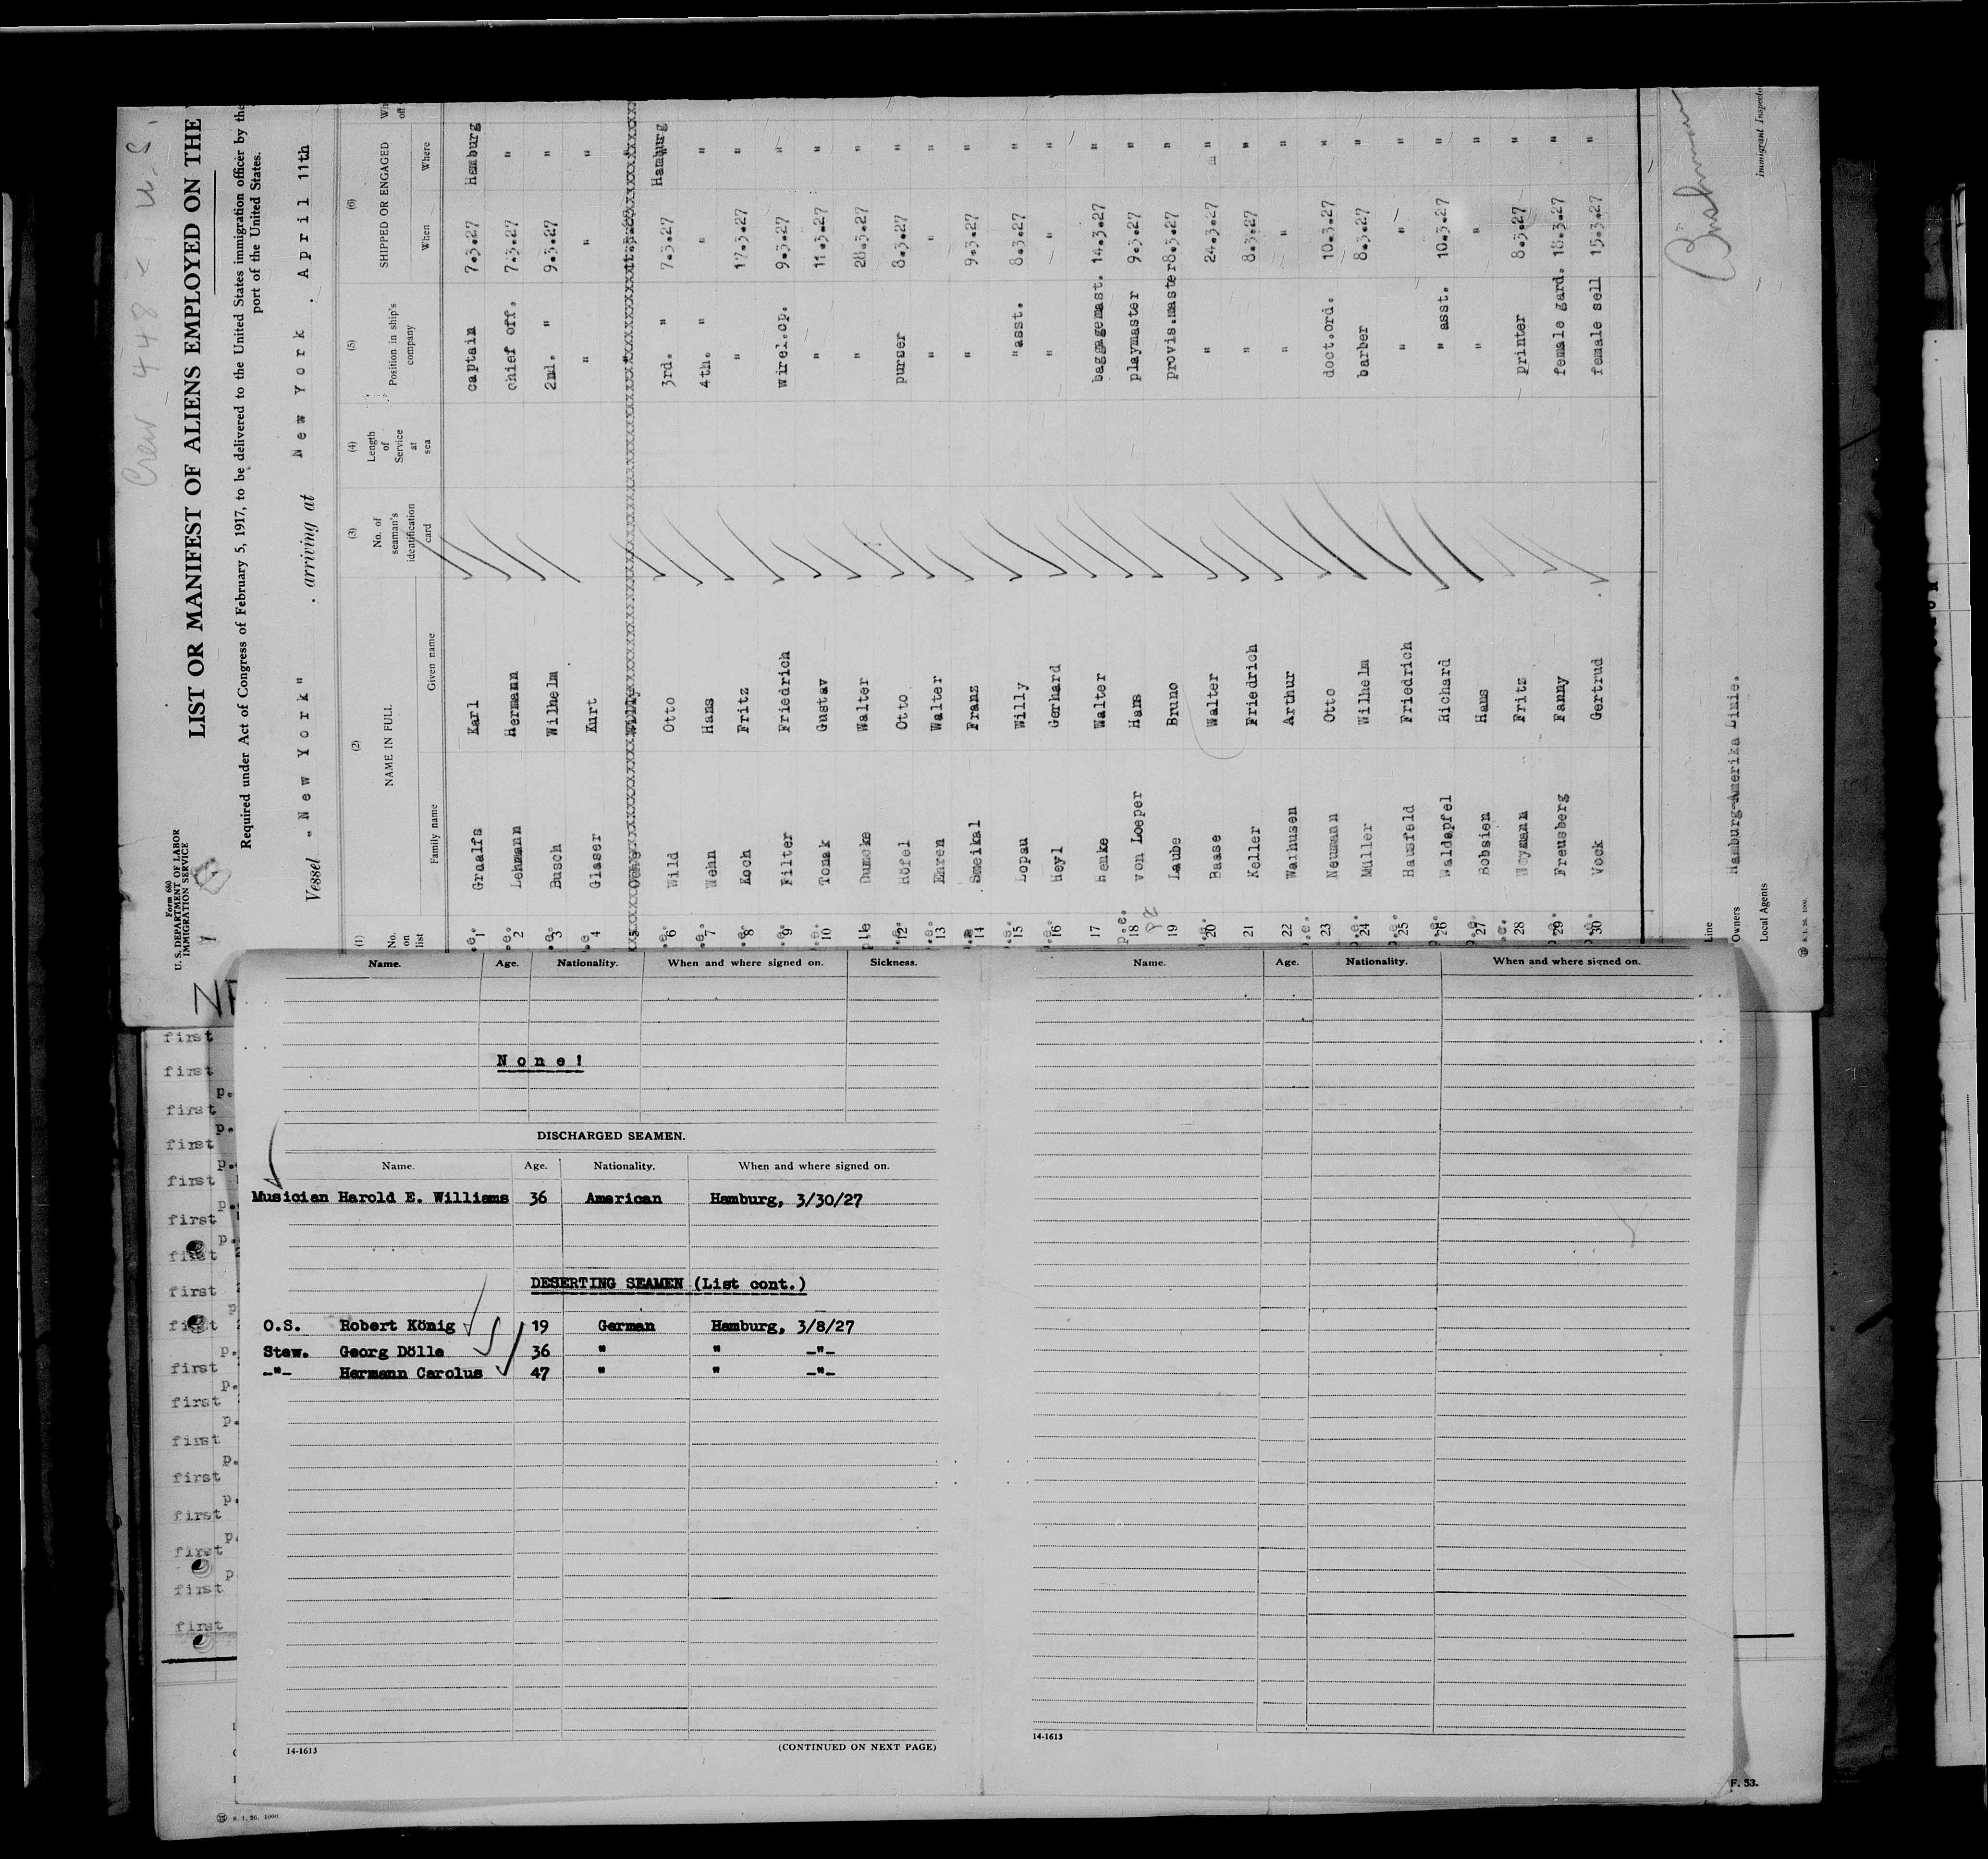 Crew 448
U.S.
Form 680
U. S. DEPARTMENT OF LABOR
IMMIGRATION SERVICE
LIST OR MANIFEST OF ALIENS EMPLOYED ON THE
Required under Act of Congress of February 5, 1917, to be delivered to the United States immigration officer by the
port of the United States.
Vessel "New York" , arriving at New York , April 11th
(1) (2) (3) (4) (5) (6)
No. on list NAME IN FULL No. of seaman's identification card Length of Service at sea Position in ship's company SHIPPED OR ENGAGED
Family name Given name When Where
1 Graalfs Karl captain 7.3.27 Hamburg
2 Lehmann Hermann chief off. 7.3.27 "
3 Busch Wilhelm 2nd. " 9.3.27 "
4 Glaser Kurt " " "
5
6 Wild Otto 3rd. " 7.3.27 Hamburg
7 Wehn Hans 4th. " " "
8 Koch Fritz " 17.3.27 "
9 Filter Friedrich wirel.op. 9.3.27 "
10 Tomak Gustav " 11.3.27 "
11 Walter " 28.3.27 "
12 Höfel Otto purser 8.3.27 "
13 Ehren Walter " " "
14 Smeikal Franz " 9.3.27 "
15 Lopau Willy " asst. 8.3.27 "
16 Heyl Gerhard " " "
17 Henke Walter baggagemast. 14.3.27 "
18 von Loeper Hans playmaster 9.3.27 "
19 Laube Bruno provis.master 8.3.27 "
20 Baase Walter " 24.3.27 "
21 Keller Friedrich " 8.3.27 "
22 Arthur " " "
23 Neumann Otto doct.ord. 10.3.27 "
24 Müller Wilhelm barber 8.3.27 "
25 Hausfeld Friedrich " " "
26 Waldapfel Richard " asst. 10.3.27 "
27 Bobsien Hans " " "
28 Weymann Fritz printer 8.3.27 "
29 Freusberg Fanny female gard. 18.3.27 "
30 Vock Gertrud female sell 15.3.27 "
Line
Owners Hamburg-Amerika Linie.
Local Agents
Immigrant Inspector
Name. Age. Nationality. When and where signed on. Sickness.
None!
DISCHARGED SEAMEN.
Name. Age. Nationality. When and where signed on.
Musician Harold E. Williams 36 American Hamburg, 3/30/27
DESERTING SEAMEN (List cont.)
O.S. Robert König 19 German Hamburg, 3/8/27
Stew. Georg Dölle 36 " " -"-
-"- Hermann Carolus 47 " " -"-
14-1613 (CONTINUED ON NEXT PAGE)
Name. Age. Nationality. When and where signed on.
14-1613
F. 53.
first
first
first
first
first
first
first
first
first
first
first
first
first
first
first
first
first
8. 1. 26. 1000.